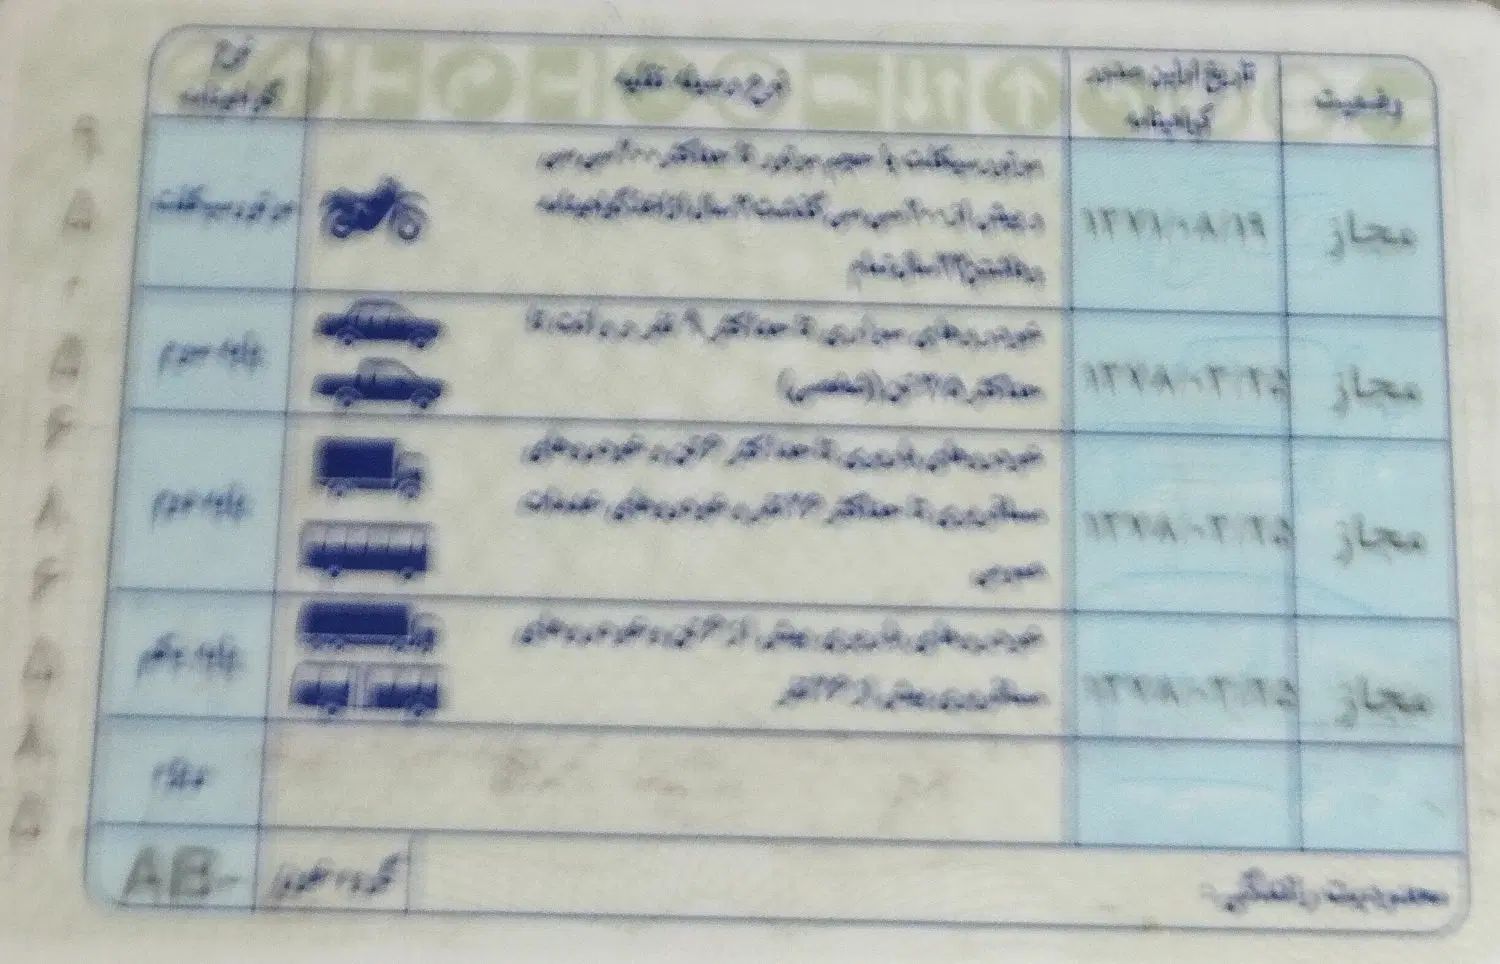 وضعیت
تاریخ اولین صدور
گواهینامه
نوع وسیله نقلیه
نوع
گواهینامه
مجاز
۱۳۷۱/۰۸/۱۹
موتورسیکلت با حجم موتور تا حداکثر ۲۰۰ سی سی
و بیش از ۲۰۰ سی سی گذشت ۲ سال از اخذ گواهینامه
و داشتن ۲۳ سال تمام
موتورسیکلت
مجاز
۱۳۷۸/۰۳/۲۵
خودروهای سواری تا حداکثر ۹ نفر و وانت تا
حداکثر ۳/۵ تن (شخصی)
پایه سوم
مجاز
۱۳۷۸/۰۳/۲۵
خودروهای باربری تا حداکثر ۶ تن و خودروهای
مسافربری تا حداکثر ۲۶ نفر و خودروهای خدمات
عمومی
پایه دوم
مجاز
۱۳۷۸/۰۳/۲۵
خودروهای باربری بیش از ۶ تن و خودروهای
مسافربری بیش از ۲۶ نفر
پایه یکم
ویژه
محدودیت رانندگی:
گروه خون
AB-